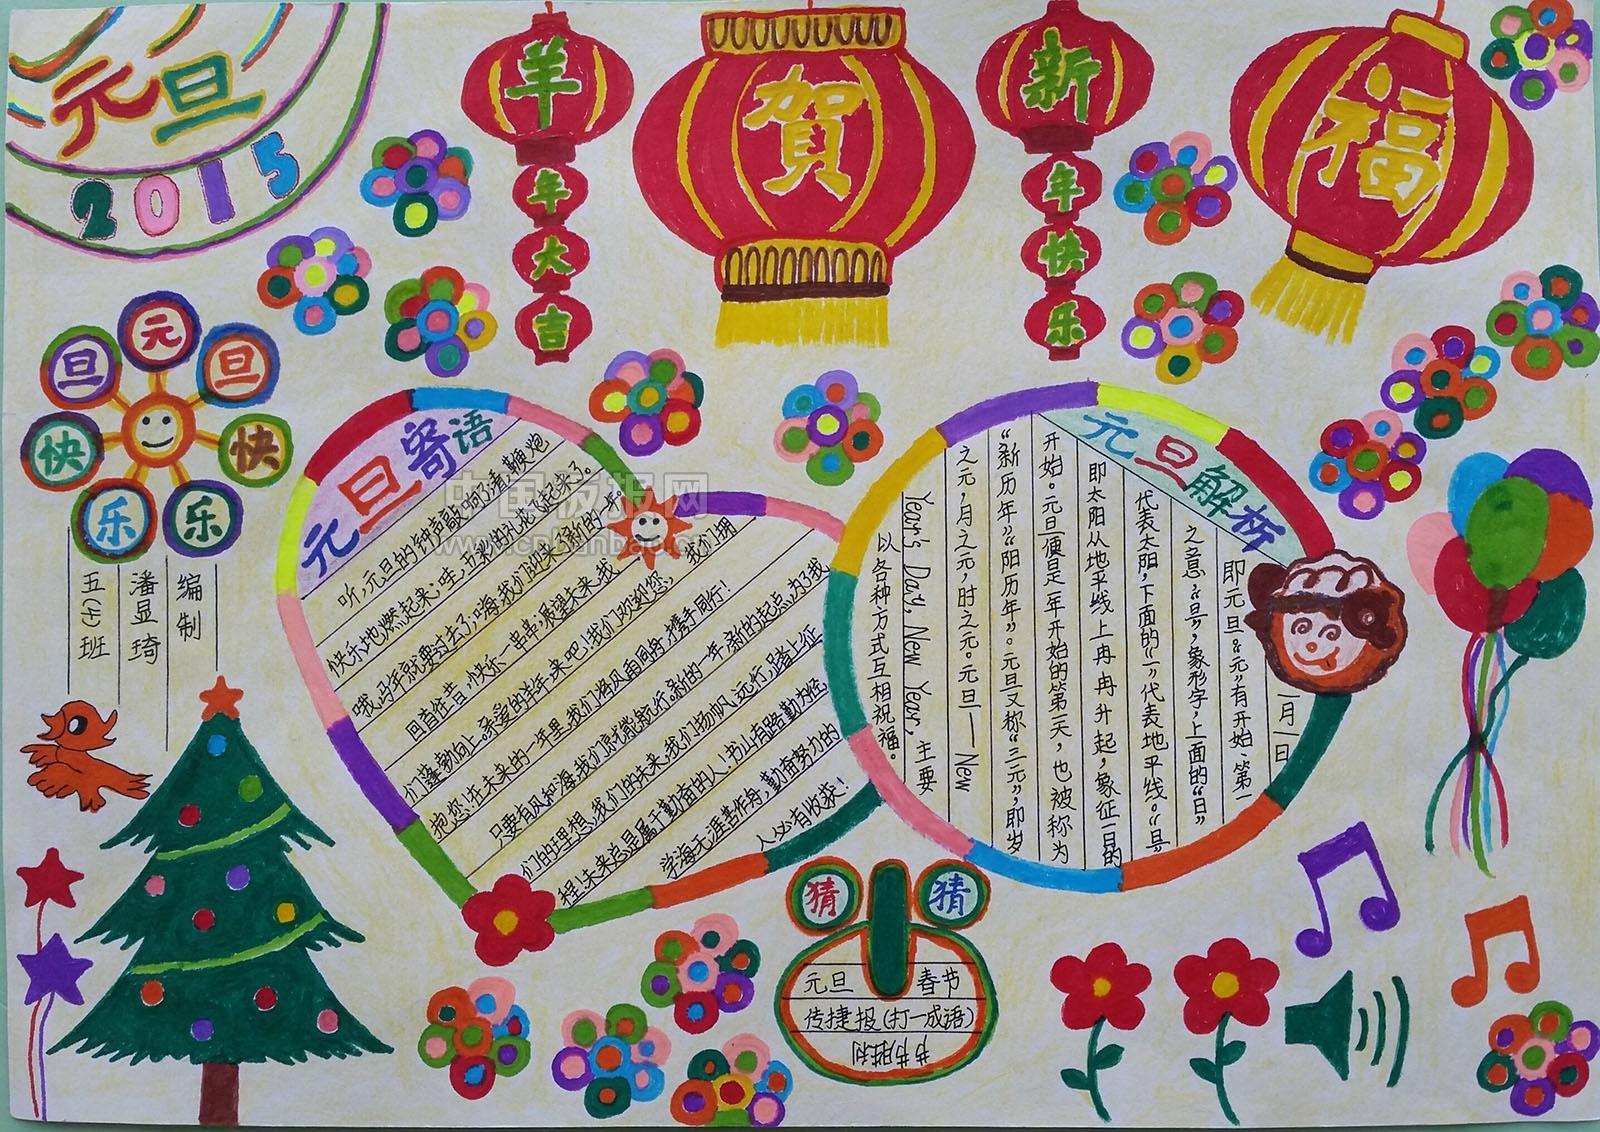 元旦
2015
羊年大吉
贺
新年快乐
福
元旦快乐
旦快乐
五(上)班
潘显琦
编制
元旦寄语
听,元旦的钟声敲响了;看,鞭炮
快乐地燃起来;哇,五彩的礼花飞起来了。
哦,马年就要过去了;嗨,我们迎来了新的一年。
回首昨昔,快乐一串串,展望未来,我
们蓬勃向上。亲爱的羊年,来吧!我们欢迎您,我们拥
抱您!在未来的一年里,我们将风雨同舟,携手同行!
只要有风和海,我们就能航行。新的一年,新的起点,为了我
们的理想,我们的未来,我们扬帆远行,踏上征
程!未来总是属于勤奋的人!书山有路勤为径,
学海无涯苦作舟,勤奋努力的
人必有收获!
元旦解析
一月一日
即元旦。“元”有开始、第一
之意,“旦”,象形字,上面的“日”
代表太阳,下面的“一”代表地平线。“旦”
即太阳从地平线上冉冉升起,象征一日的
开始。元旦便是一年开始的第一天,也被称为
“新历年”“阳历年”。元旦又称“三元”,即岁
之元,月之元,时之元。元旦——New
Year's Day, New Year,主要
以各种方式互相祝福。
猜猜
元旦 春节
传捷报(打一成语)
节节胜利
中国板报网
www.cnbanbao.cn